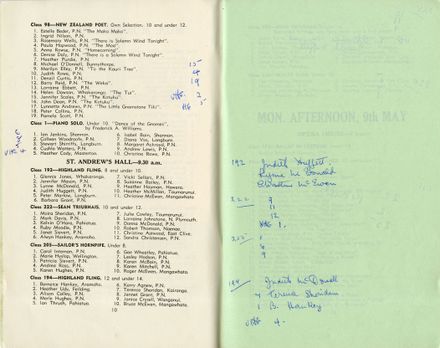 Class 98—NEW ZEALAND POET. Own Selection. 10 and under 12.
1. Estelle Beder, P.N. "The Moko Moko"
2. Ingrid Nilson, P.N.
3. Rosemary Wells, P.N. "There is Solemn Wind Tonight"
4. Paula Hapwood, P.N. "The Moa"
5. Anne Rowe, P.N. "Homecoming"
6. Denise Daly, P.N. "There is Solemn Wind Tonight"
7. Heather Purdie, P.N.
8. Michael O'Donnell, Bunnythorpe.
9. Marilyn Elley, P.N. "To the Kauri Tree"
10. Judith Rowe, P.N.
11. Denzil Curtis, P.N.
12. Barry Reid, P.N. "The Weka"
13. Lorraine Ebbett, P.N.
14. Helen Dawson, Whakarongo. "The Tui"
15. Jennifer Scales, P.N. "The Kotuku"
16. John Dean, P.N. "The Kotuku"
17. Lynnette Andrews, P.N. "The Little Greenstone Tiki"
18. Peter Collins, P.N.
19. Pamela Scott, P.N.
15
4
19
VHC. 2
HC
Class 1—PIANO SOLO. Under 10. "Dance of the Gnomes"
by Frederick A. Williams.
1. Ian Jenkins, Shannon.
2. Colleen Woodroofe, P.N.
3. Stewart Shirriffs, Longburn.
4. Cushla Waters, P.N.
5. Heather Cody, Masterton.
6. Isabel Bain, Shannon.
7. Diana Yee, Longburn.
8. Margaret Astroud, P.N.
9. Andree Lewin, P.N.
10. Christine Bown, P.N.
ST. ANDREW'S HALL—8.30 a.m.
Class 192—HIGHLAND FLING. 8 and under 10.
1. Glennis Jones, Whakaronga.
2. Jennifer Mason, P.N.
3. Lynne McDonald, P.N.
4. Judith Huggett, P.N.
5. Peter Manley, Longburn.
6. Barbara Grant, P.N.
7. Vicki Sellars, P.N.
8. Suzanne Bishop, P.N.
9. Heather Hayman, Hawera.
10. Heather McMillan, Tiyramarunga.
11. Christine McEwen, Mangawhata
Class 222—SEAN TRIUBHAIS. 10 and under 12.
1. Moira Sheridan, P.N.
2. Mark Davis, P.N.
3. Kelvin O'Hara, Pahiatua.
4. Ruby Moodie, P.N.
5. Janet Stuart, P.N.
6. Alwyn Hankey, Aramoho.
7. Julie Cowley, Taumarunui.
8. Lorraine Johnstone, N. Plymouth.
9. Donna McDonald, P.N.
10. Robert Thomson, Naenae.
11. Christine Aamwood, East Clive.
12. Sandra Christensen, P.N.
Class 203—SAILOR'S HORNPIPE. Under 8.
1. Carol Inteman, P.N.
2. Marie Hyslop, Wellington.
3. Patricia Stewart, P.N.
4. Andrea Ross, P.N.
5. Karen Hughes, P.N.
6. Gae Wheatley, Pahiatua.
7. Lesley Hodson, P.N.
8. Karen McBain, P.N.
9. Karen Mitchell, P.N.
10. Roger McEwen, Mangawhata
Class 194—HIGHLAND FLING. 12 and under 14.
1. Bernenze Hankey, Aramoho.
2. Heather Udy, Feilding.
3. Alison Calley, P.N.
4. Marie Hughes, P.N.
5. Ian Thrush, Pahiatua.
6. Kerry Agnew, P.N.
7. Teressa Sheridan, Kairanga.
8. Jennet Grant, P.N.
9. Janice Crysell, Wanganui.
10. Bruce McEwen, Mangawhata.
10
MON. AFTERNOON, 9th MAY
192 Judith Huggett
Lynne McDonald
Christine McEwen
222 9
11
12
HC 1.
203 6
9
194 Judith McDonell
7 Teresa Sheridan
1 B. Hankey
VHC 4.